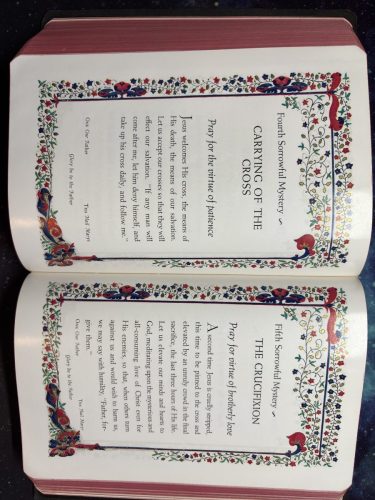 Fourth Sorrowful Mystery ~
CARRYING OF THE
CROSS
Pray for the virtue of patience
Jesus welcomes His cross, the means of
His death, the means of our salvation.
Let us accept our crosses so that they will
effect our salvation. "If any man will
come after me, let him deny himself, and
take up his cross daily, and follow me."
One Our Father
Ten Hail Marys
Glory be to the Father
Fifth Sorrowful Mystery ~
THE CRUCIFIXION
Pray for virtue of brotherly love
A second time Jesus is cruelly stripped,
this time to be pinned to the cross and
elevated by an unruly crowd in the final
sacrifice, the last three hours of His life.
Let us elevate our minds and hearts to
God, meditating upon the mysterious and
all-consuming love of Christ even for
His enemies, so that, when others turn
against us and would wish to harm us,
we may say with humility, "Father, for-
give them."
One Our Father
Ten Hail Marys
Glory be to the Father